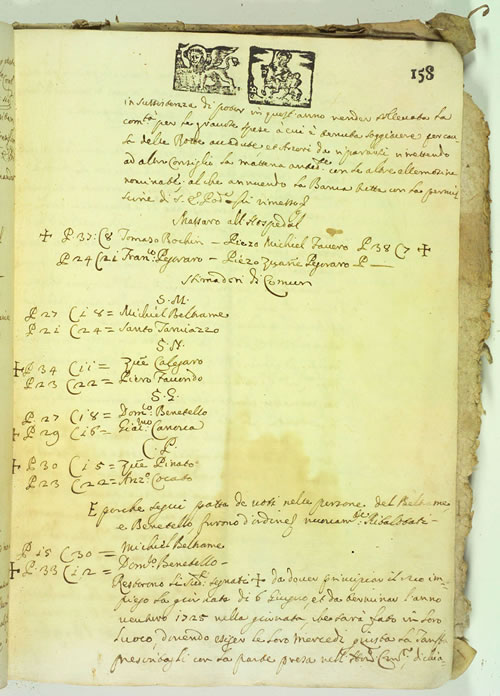 158
in sussistenza di poter in quest'anno render sollevata la
com.tà per la grande spesa a cui è venuta soggettare per cau
sa delle Rotte accadute et Arcori da ripararsi rimettendo
ad altro Consiglio la mattena con le altre ellemosine
nominabili al che annuendo la Banca detta con la permis
sione di S. E. Podestà rimesso
Massaro all'Hospedal
+ P 37: C 8 Tomaso Rochin – Piero Michiel Favero P 38 C 7 +
P 24 C 21 Fran.co Pegoraro – Piero Zuane Pegoraro P —
Stimadori di Comun
S. M.
P 27 C 18 = Michiel Beltrame
P 21 C 24 = Santo Tamiazzo
S. N.
+ P 34 C 11 = Zuē Calegaro
P 23 C 22 = Piero Favondo
S. G.
P 27 C 18 = Dom.co Benetello
+ P 29 C 16 = Canova
C. P.
+ P 30 C 15 = Zuē Pinato
P 23 C 22 = Ant.o Cocato
E perche seguì patta de voti nelle persone del Beltrame
e Benetello furono d'ordine nuovam.te Ribalotate –
P 15 C 30 = Michiel Beltrame
+ P 33 C 12 = Dom.co Benetello –
Restorono li Sud.ti segnati + da dover principiar il suo im
piego la giornata di 6 Giugno et da terminar l'anno
venturo 1725 nella giornata che sarà fato in loro
luoco dovendo esiger le loro mercedi giusta la Tariff
prescritagli con la parte presa nell' Cons.o di cui a